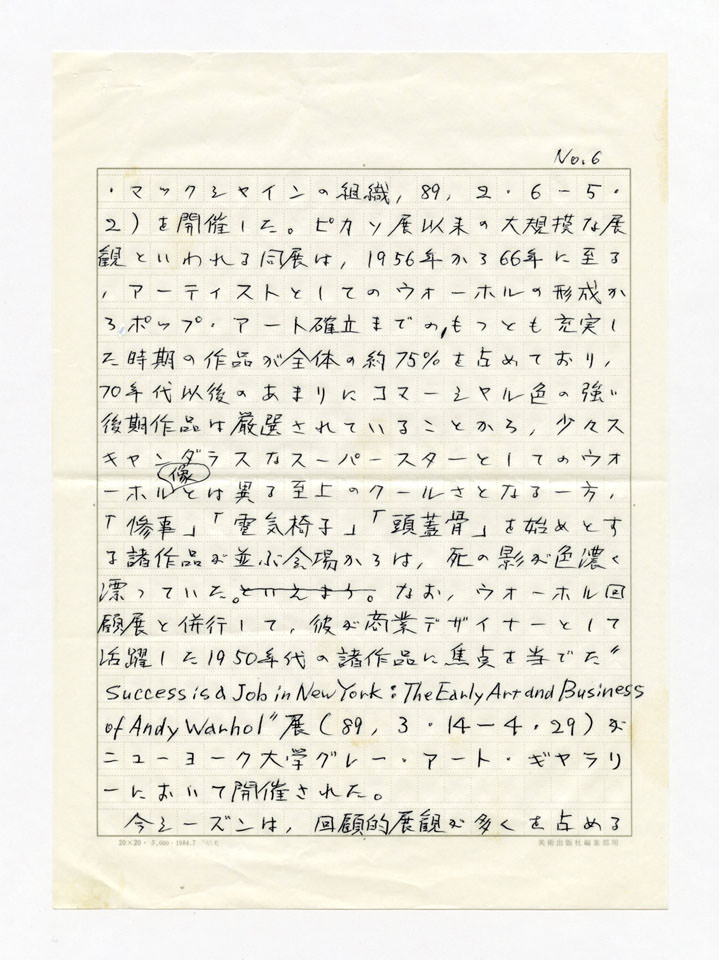 No.6
・マックシャインの組織, 89, 2・6-5・
2)を開催した。ピカソ展以来の大規模な展
観といわれる同展は, 1956年から66年に至る
, アーティストとしてのウォーホルの形成か
らポップ・アート確立までの, もっとも充実し
た時期の作品が全体の約75%を占めており,
70年代以後のあまりにコマーシャル色の強い
後期作品は厳選されていることから, 少々ス
キャンダラスなスーパースターとしてのウォ
像
ーホルとは異る至上のクールさとなる一方,
「惨事」「電気椅子」「頭蓋骨」を始めとす
る諸作品が並ぶ会場からは, 死の影が色濃く
漂っていた。といえまう。なお, ウォーホル回
顧展と併行して, 彼が商業デザイナーとして
活躍した1950年代の諸作品に焦点を当てた"
Success is a Job in New York : The Early Art and Business
of Andy Warhol"展(89, 3・14-4・29)が
ニューヨーク大学グレー・アート・ギャラリ
ーにおいて開催された。
今シーズンは, 回顧的展観が多くを占める
20×20・5,000・1984.7
美術出版社編集部用